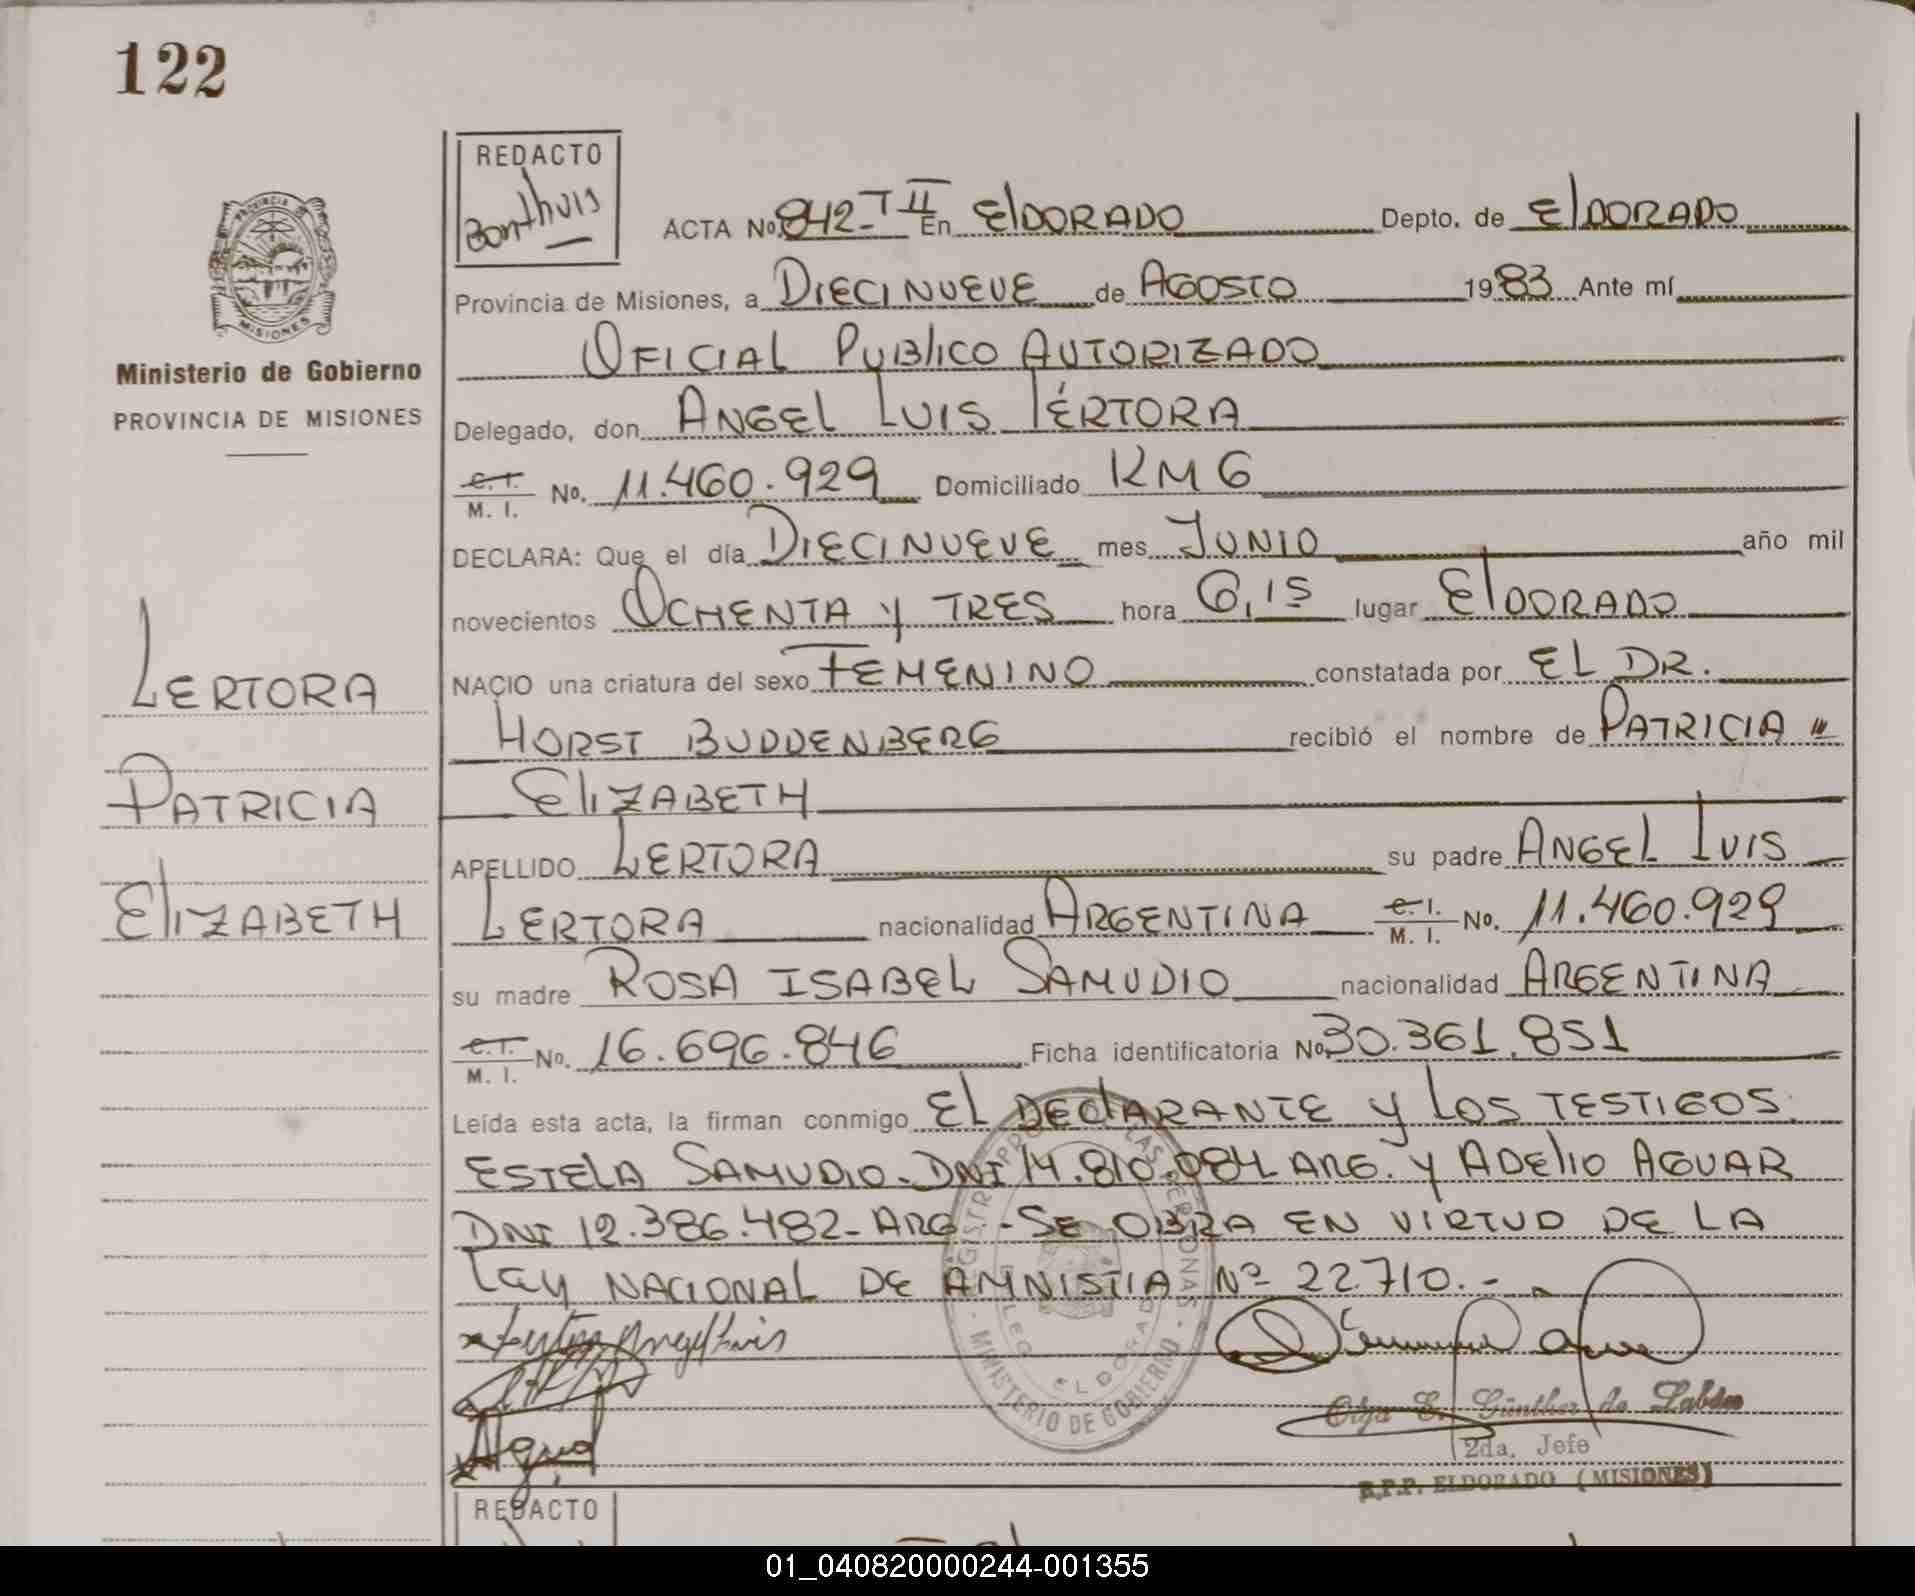 122
REDACTO
Bonthuis
ACTA No. 842-T II En ElDORADO Depto. de ElDORADO
Provincia de Misiones, a DIECINUEVE de AGOSTO 1983 Ante mí
OFICIAL PUBlICO AUTORIZADO
Delegado, don ANGEL LUIS LÉRTORA
C.I. M. I. No. 11.460.929 Domiciliado KM 6
DECLARA: Que el día DIECINUEVE mes JUNIO año mil
novecientos OCHENTA y TRES hora 6,15 lugar ElDORADO
NACIO una criatura del sexo FEMENINO constatada por EL DR.
HORST BUDDENBERG recibió el nombre de PATRICIA
ElIZABETH
APELLIDO LERTORA su padre ANGEL LUIS
LERTORA nacionalidad ARGENTINA C.I. M. I. No. 11.460.929
su madre ROSA ISABEL SAMUDIO nacionalidad ARGENTINA
C.I. M. I. No. 16.696.846 Ficha identificatoria No. 30.361.851
Leída esta acta, la firman conmigo EL DEClARANTE y LOS TESTIGOS:
ESTELA SAMUDIO. DNI 14.810.084 ARG. y ADElIO AGUAR
DNI 12.386.482- ARG -SE OBRA EN VIRTUD DE LA
Ley NACIONAL DE AMNISTIA Nº 22.710.-
Angel Luis
Olga E. Günther de
2da. Jefe
R.P.P. ELDORADO (MISIONES)
MINISTERIO DE GOBIERNO
ELDORADO
REDACTO
PROVINCIA DE
MISIONES
Ministerio de Gobierno
PROVINCIA DE MISIONES
LERTORA
PATRICIA
ElIZABETH
01_040820000244-001355